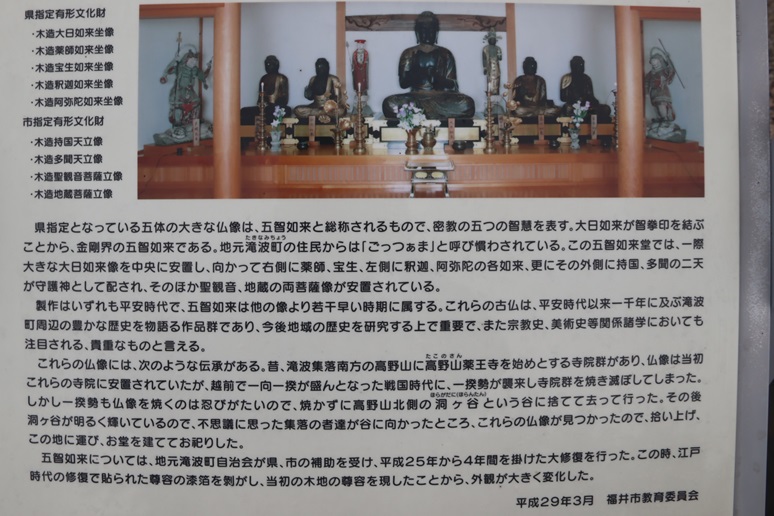 県指定有形文化財
・木造大日如来坐像
・木造薬師如来坐像
・木造宝生如来坐像
・木造釈迦如来坐像
・木造阿弥陀如来坐像
市指定有形文化財
・木造持国天立像
・木造多聞天立像
・木造聖観音菩薩立像
・木造地蔵菩薩立像
県指定となっている五体の大きな仏像は、五智如来と総称されるもので、密教の五つの智慧を表す。大日如来が智拳印を結ぶ
ことから、金剛界の五智如来である。地元滝波町の住民からは「ごっつぁま」と呼び慣わされている。この五智如来堂では、一際
たきなみちょう
大きな大日如来像を中央に安置し、向かって右側に薬師、宝生、左側に釈迦、阿弥陀の各如来、更にその外側に持国、多聞の二天
が守護神として配され、そのほか聖観音、地蔵の両菩薩像が安置されている。
製作はいずれも平安時代で、五智如来は他の像より若干早い時期に属する。これらの古仏は、平安時代以来一千年に及ぶ滝波
町周辺の豊かな歴史を物語る作品群であり、今後地域の歴史を研究する上で重要で、また宗教史、美術史等関係諸学においても
注目される、貴重なものと言える。
これらの仏像には、次のような伝承がある。昔、滝波集落南方の高野山に高野山薬王寺を始めとする寺院群があり、仏像は当初
たこのさん
これらの寺院に安置されていたが、越前で一向一揆が盛んとなった戦国時代に、一揆勢が襲来し寺院群を焼き滅ぼしてしまった。
しかし一揆勢も仏像を焼くのは忍びがたいので、焼かずに高野山北側の洞ヶ谷という谷に捨てて去って行った。その後
ほらがだに(ほらんたん)
洞ヶ谷が明るく輝いているので、不思議に思った集落の者達が谷に向かったところ、これらの仏像が見つかったので、拾い上げ、
この地に運び、お堂を建ててお祀りした。
五智如来については、地元滝波町自治会が県、市の補助を受け、平成25年から4年間を掛けた大修復を行った。この時、江戸
時代の修復で貼られた尊容の漆箔を剝がし、当初の木地の尊容を現したことから、外観が大きく変化した。
平成29年3月　福井市教育委員会